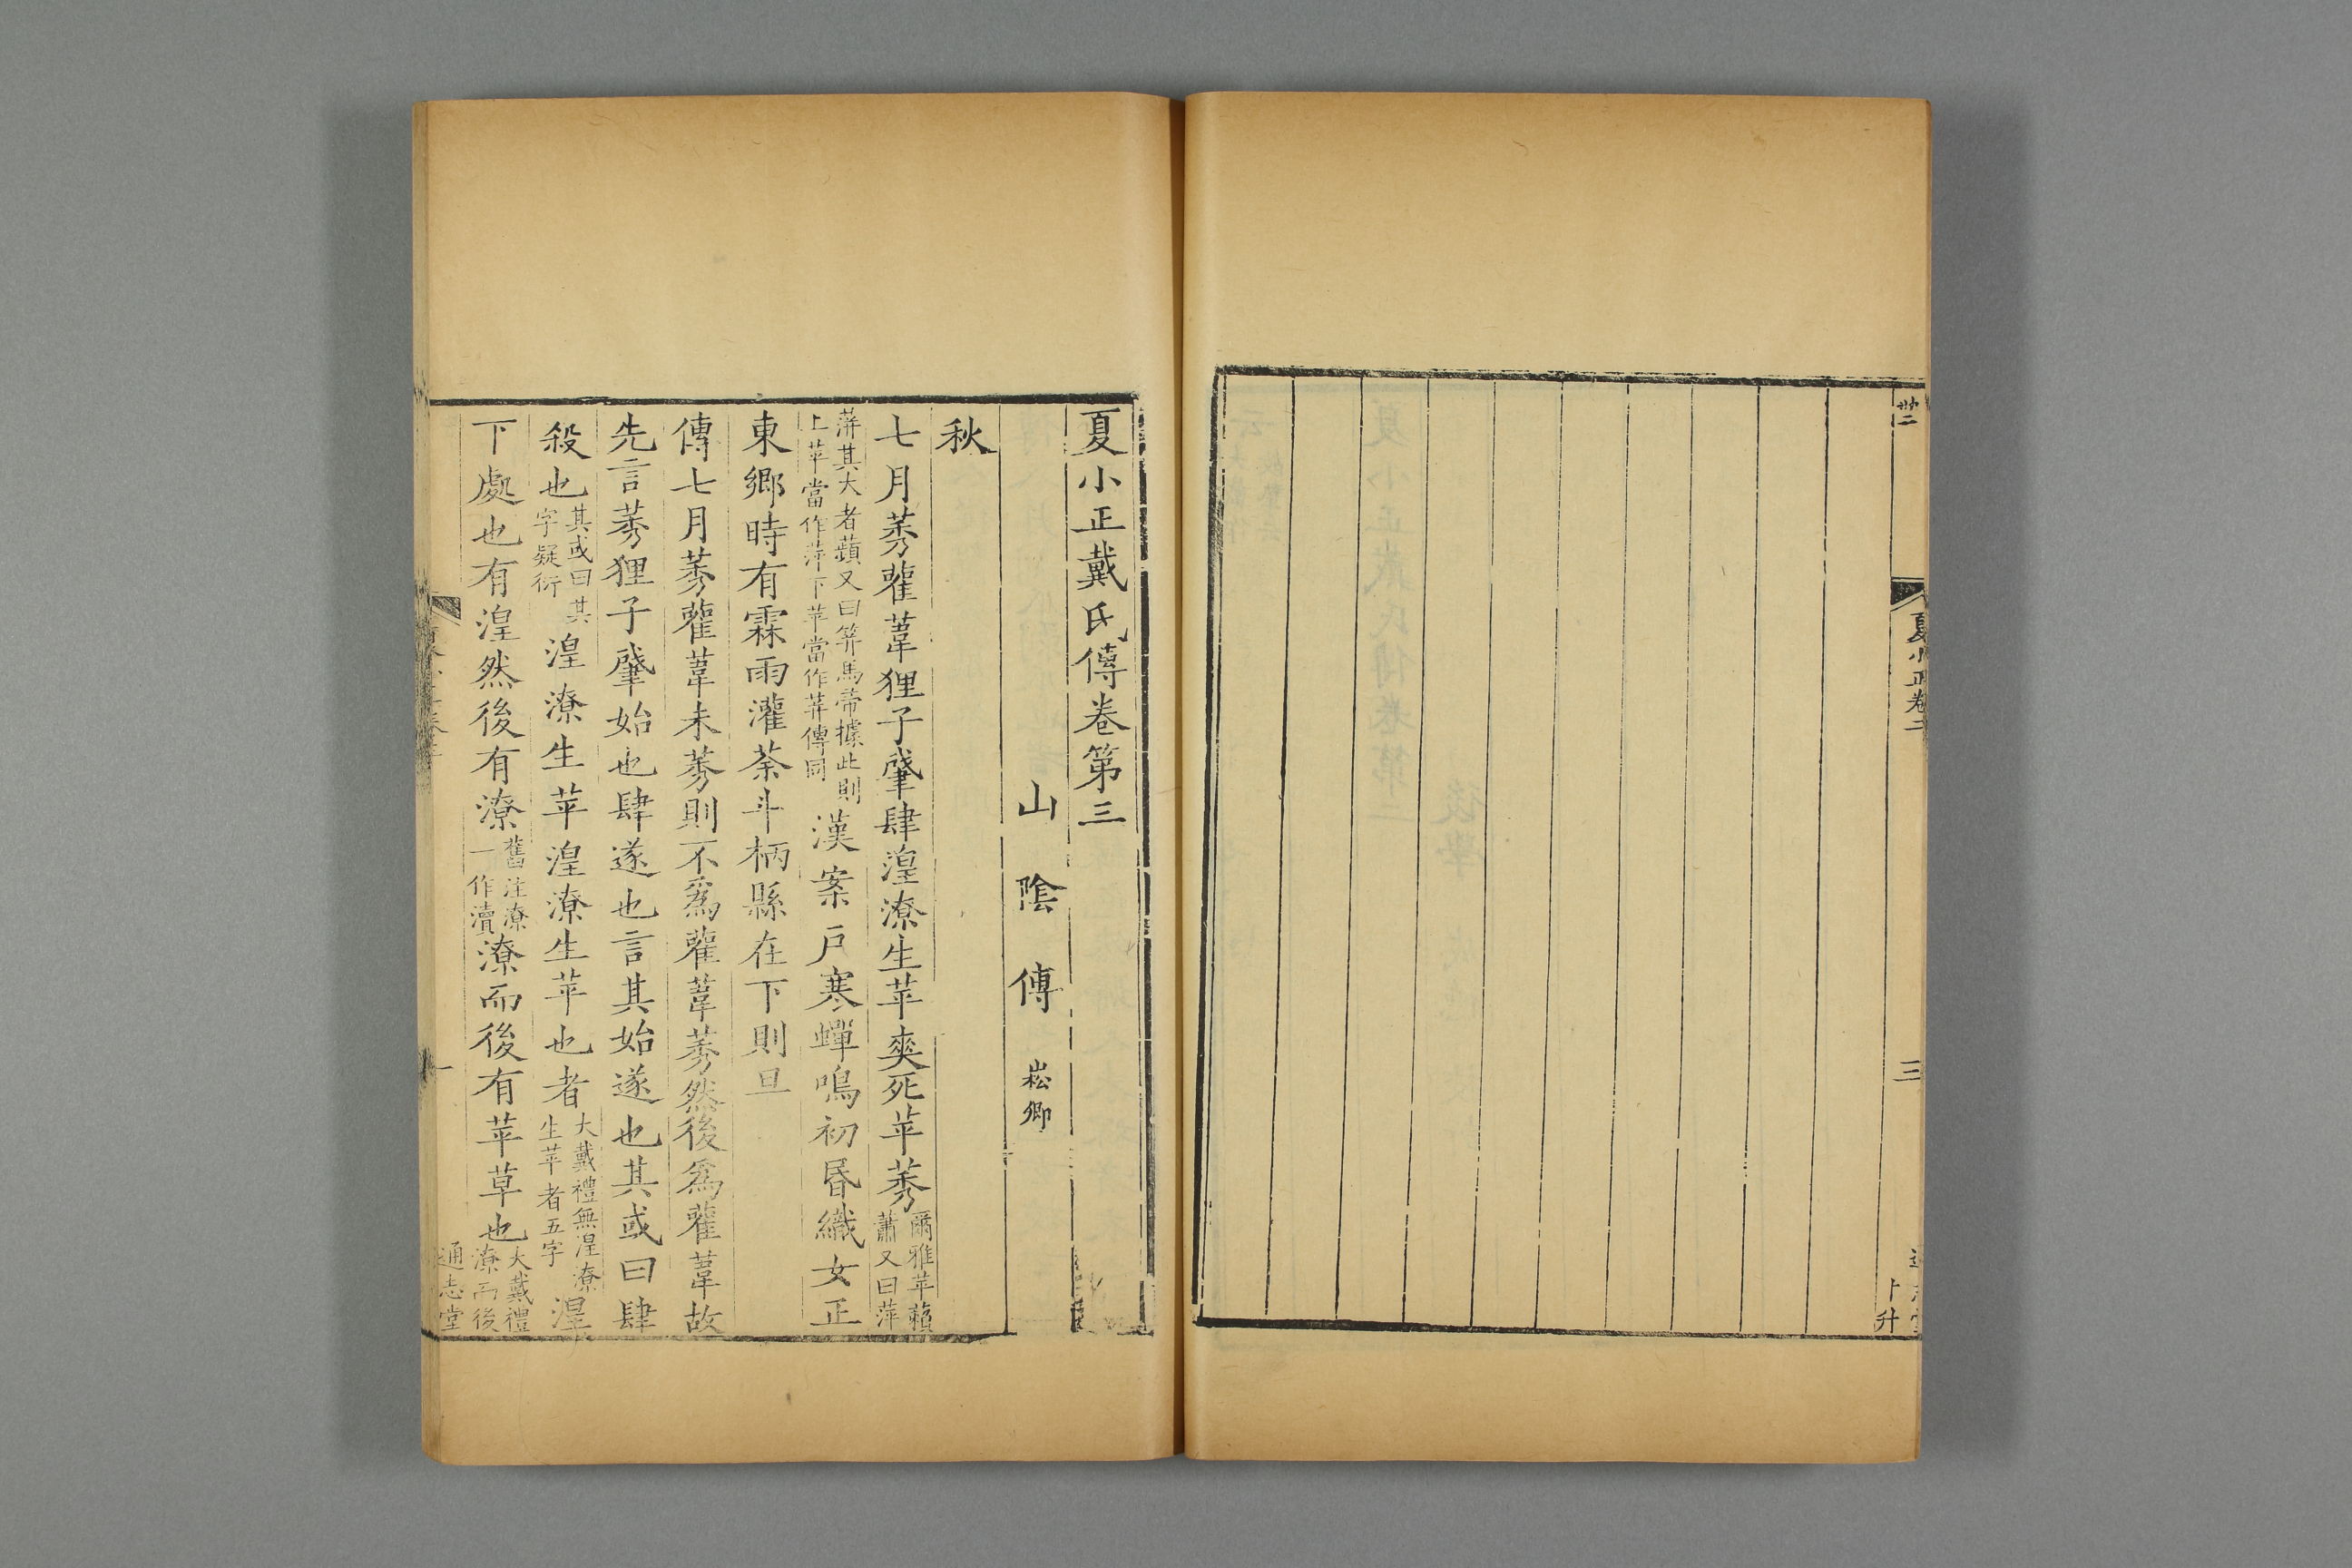 夏小正卷二
三
卜升
夏小正戴氏傳卷第三
山陰傅崧卿
秋
七月莠雚葦狸子肇肆湟潦生苹爽死苹莠爾雅苹藾蕭又曰萍
蓱其大者蘋又曰荓馬帚據此則上苹當作萍下苹當作荓傳同漢案戸寒蟬鳴初昏織女正
東鄉時有霖雨灌荼斗柄縣在下則旦
傳七月莠雚葦未莠則不爲雚葦莠然後爲雚葦故
先言莠狸子肇始也肆遂也言其始遂也其或曰肆
殺也其或曰其字疑衍湟潦生苹湟潦生苹也者大戴禮無湟潦生苹者五字湟
下處也有湟然後有潦舊注潦一作瀆潦而後有苹草也大戴禮潦而後
一
通志堂